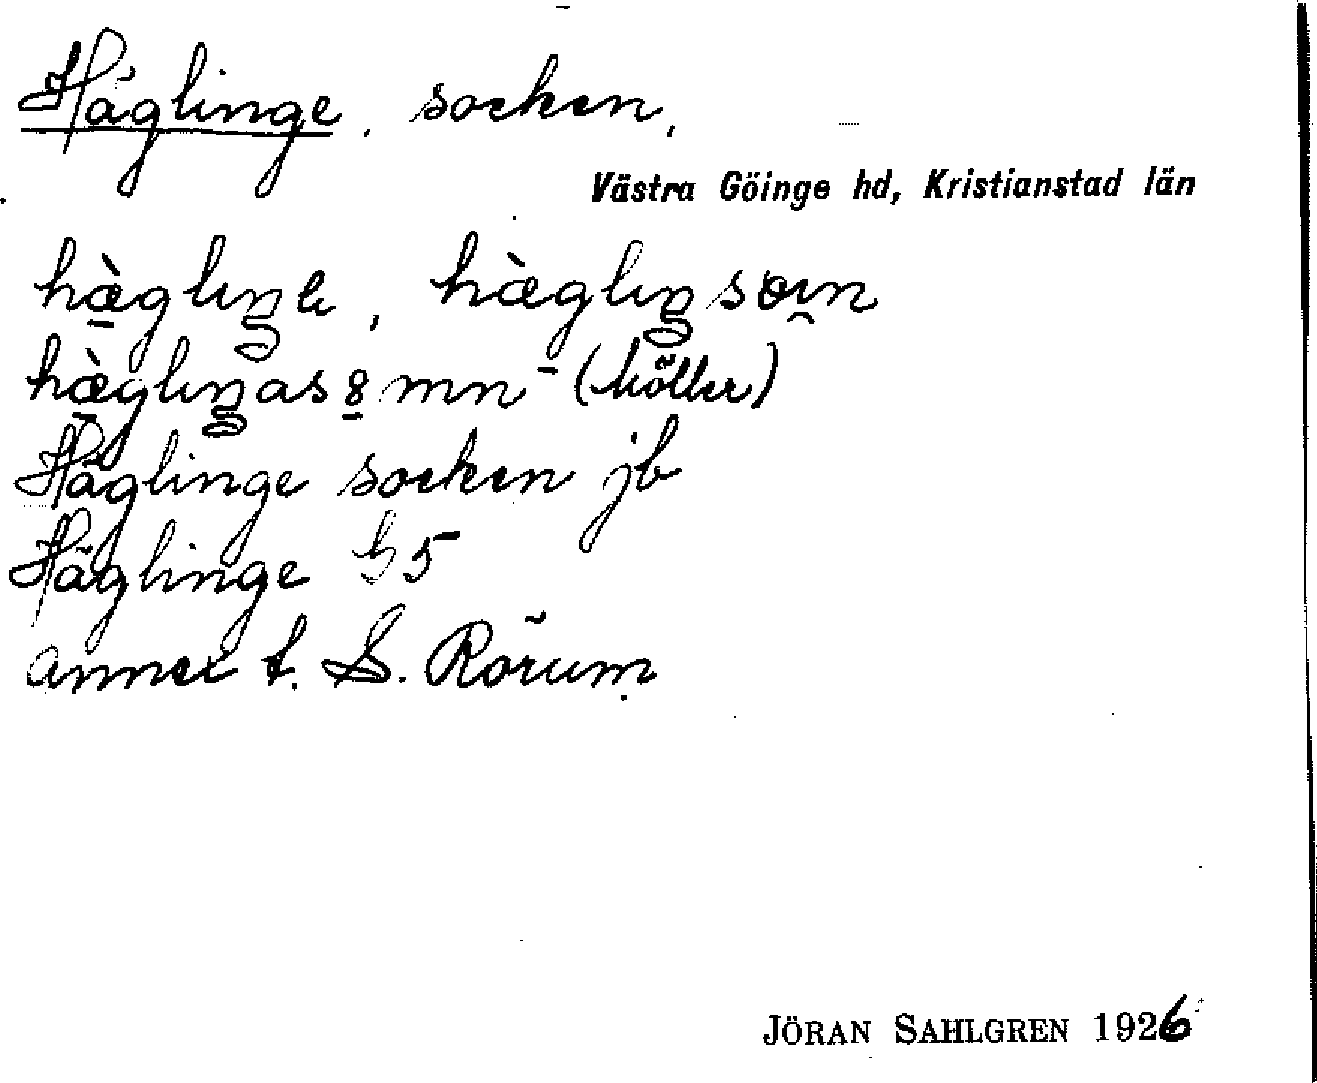 Häglinge, socken,
Västra Göinge hd, Kristianstad län
hæ̀glıŋe, hæ̀glıŋ
hæ̀glıŋas (Möller)
Häglinge socken jb
Häglinge G5
annex t. S. Rörum
JÖRAN SAHLGREN 1926